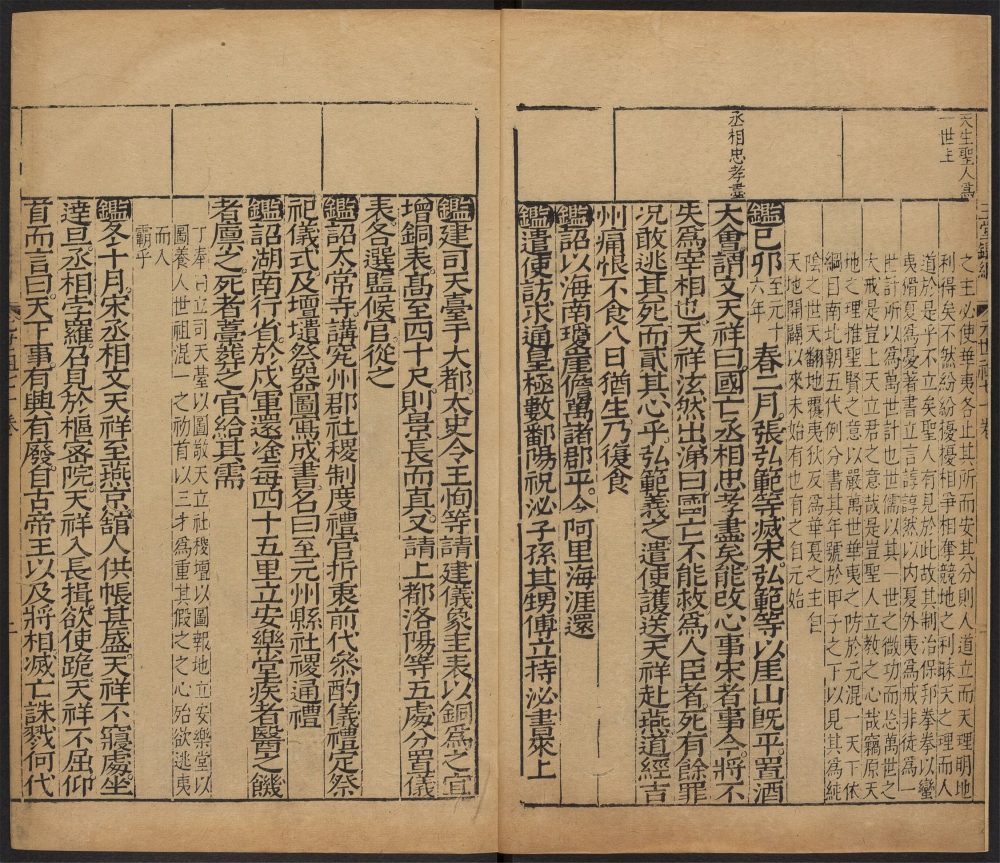 天生聖人爲
一世主
丞相忠孝盡
之主必使華夷各止其所而安其分則人道立而天理明地
利得矣不然紛紛擾擾相爭相奪競地之利昧天之理而人
道於是乎不立矣聖人有見於此故其制治保邦拳拳以蠻
夷猾夏爲憂著書立言諄諄然以内夏外夷爲戒非徒爲一
世計所以爲萬世計也世儒以其一世之微功而忘萬世之
大戒是豈上天立君之意哉是豈聖人立教之心哉竊原天
地之理惟聖賢之意以嚴萬世華夷之防於元混一天下依
綱目南北朝五代例分書其年號於甲子之下以見其爲純
陰之世天翻地覆夷狄反爲華夏之主自
天地開闢以來未始有也有之自元始
鑑己卯至元十六年春二月張弘範等滅宋弘範等以厓山既平置酒
大會謂文天祥曰國亡丞相忠孝盡矣能改心事宋者事今將不
失爲宰相也天祥泫然出涕曰國亡不能救爲人臣者死有餘罪
况敢逃其死而貳其心乎弘範義之遣使護送天祥赴燕道經吉
州痛恨不食八日猶生乃復食
鑑詔以海南瓊崖儋萬諸郡平令阿里海涯還
鑑遣使訪求通皇極數鄱陽祝泌子孫其甥傅立持泌書來上
鑑建司天臺于大都太史令王恂等請建儀象圭表以銅爲之宜
增銅表高至四十尺則景長而真又請上都洛陽等五處分置儀
表各選監候官從之
鑑詔太常寺講究州郡社稷制度禮官折衷前代叅酌儀禮定祭
祀儀式及壇壝祭器圖寫成書名曰至元州縣社稷通禮
鑑詔湖南行省於戍軍還途每四十五里立安樂堂疾者醫之饑
者廩之死者藁葬之官給其需
丁奉曰立司天臺以圖敬天立社稷壇以圖報地立安樂堂以
圖養人世祖混一之初首以三才爲重其假之之心殆欲逃夷
而人
霸乎
鑑冬十月宋丞相文天祥至燕京舘人供帳甚盛天祥不寢處坐
達旦丞相孛羅召見於樞密院天祥入長揖欲使跪天祥不屈仰
首而言曰天下事有興有廢自古帝王以及將相滅亡誅戮何代